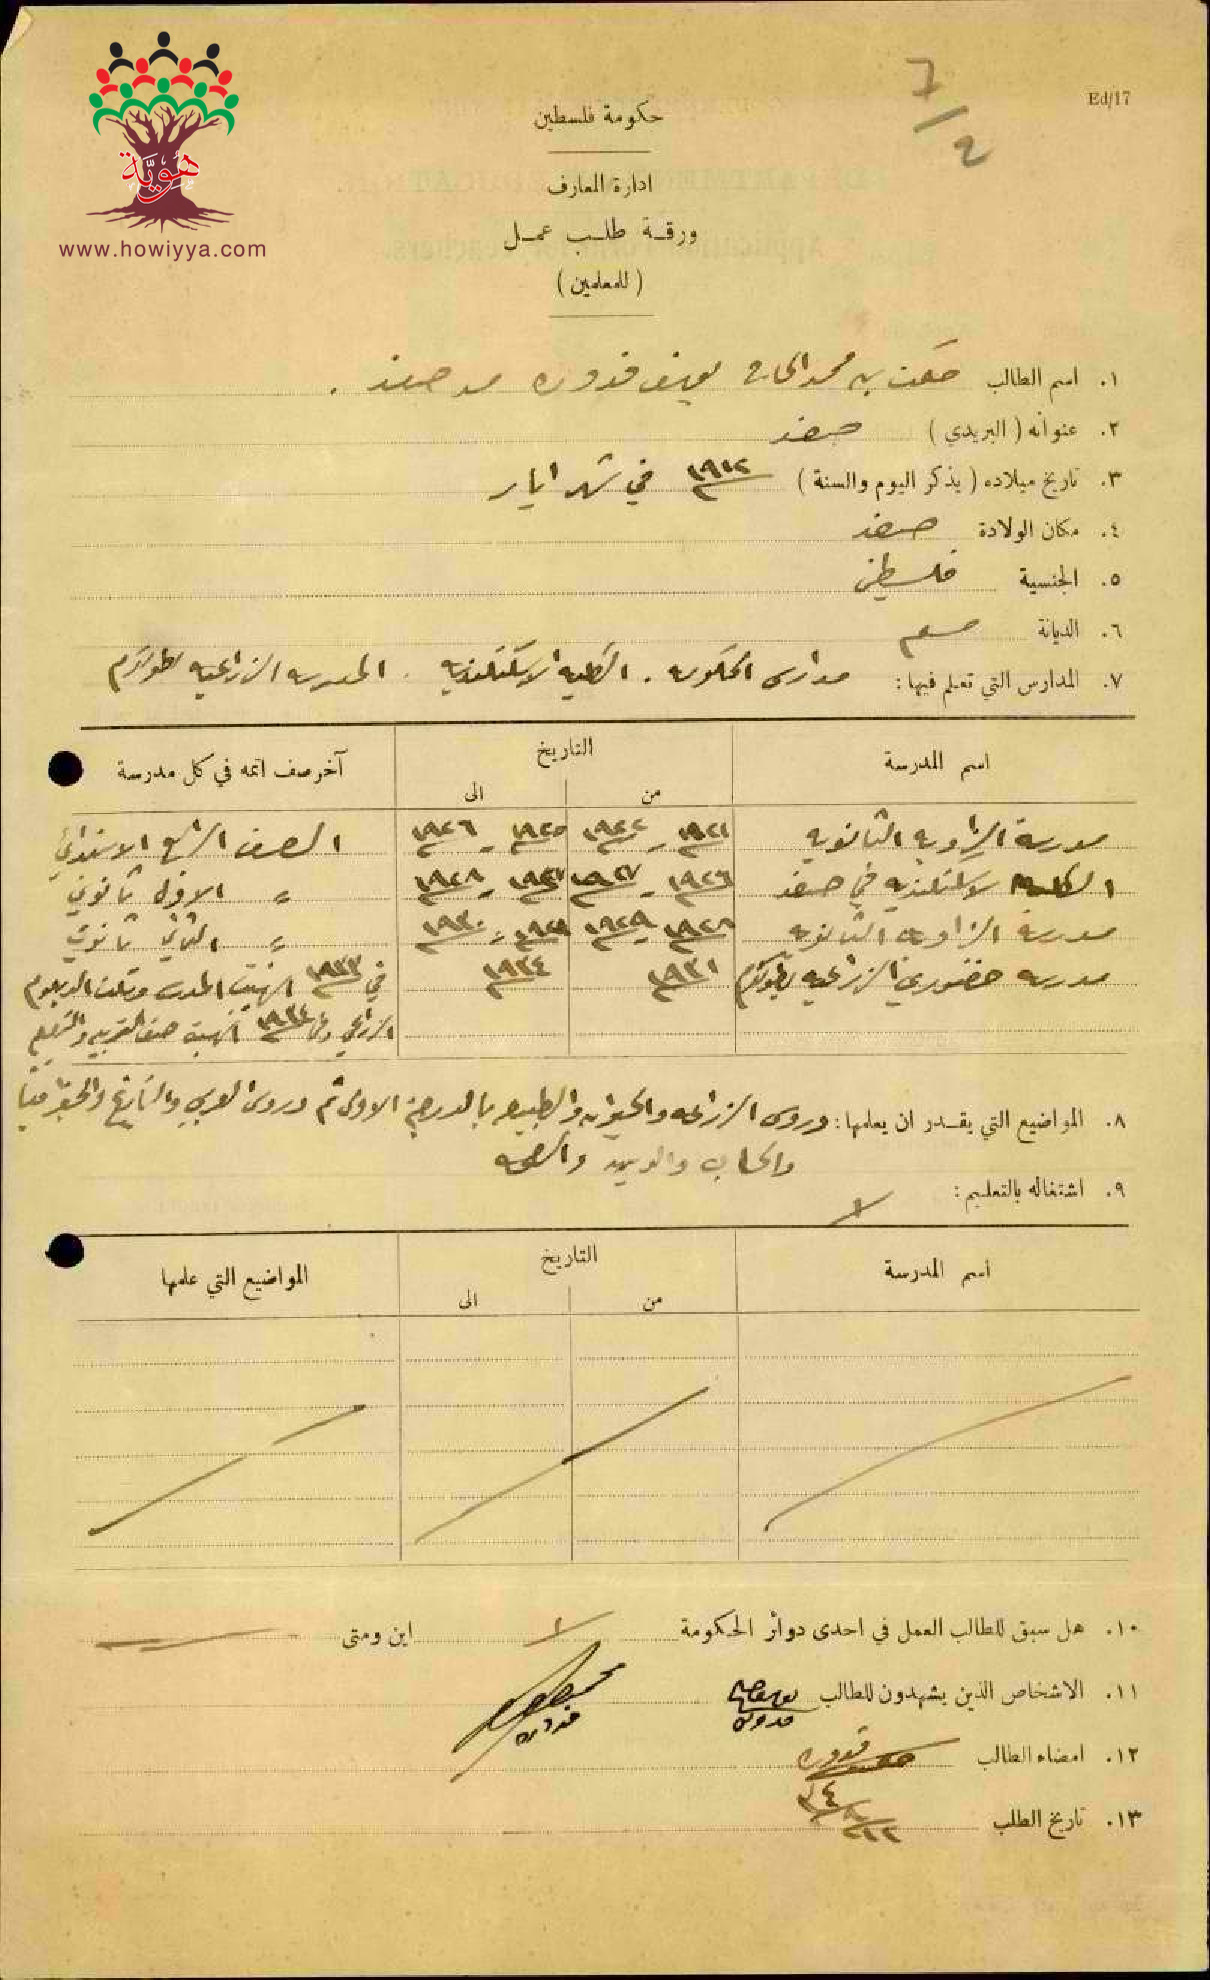 هُوِيَّة
www.howiyya.com
Ed/17
٢/٦
حكومة فلسطين
ادارة المعارف
ورقة طلب عمل
(للمعلمين)
١. اسم الطالب حكمت بن محمد الحاج يوسف قدوره من صفد .
٢. عنوانه (البريدي) صفد
٣. تاريخ ميلاده (يذكر اليوم والسنة) ١٩١٢ في شهر ايار
٤. مكان الولادة صفد
٥. الجنسية فلسطيني
٦. الديانة مسلم
٧. المدارس التي تعلم فيها: مدارس الحكومه . الكليه الاسكتلنديه . المدرسه الزراعيه بطولكرم
اسم المدرسة التاريخ آخر صف اتمه في كل مدرسة
من الى
مدرسة الزاويه الثانويه ١٩٢١ - ١٩٢٢ ١٩٢٥ - ١٩٢٦ الصف السابع الابتدائي
الكليه الاسكتلنديه في صفد ١٩٢٦ - ١٩٢٧ ١٩٢٧ - ١٩٢٨ " الاول ثانوي
مدرسة الزاويه الثانويه ١٩٢٨ - ١٩٢٩ ١٩٢٩ - ١٩٣٠ " الثاني ثانوي
مدرسه خضوري الزراعيه بطولكرم ١٩٣١ ١٩٣٤ في ١٩٣٣ انهيت المدرسه ونلت الدبلوم
الزراعي وفي ١٩٣٤ انهيت صف التربيه والتعليم
٨. المواضيع التي يقدر ان يعلمها: دروس الزراعه والحيوان والطبيعه بالدرجة الاولى ثم دروس العربي والتاريخ والجغرافيا
والحساب والدين والصحه
٩. اشتغاله بالتعليم: لا
اسم المدرسة التاريخ المواضيع التي علمها
من الى
١٠. هل سبق للطالب العمل في احدى دوائر الحكومة لا اين ومتى
١١. الاشخاص الذين يشهدون للطالب قدوره قدوره
١٢. امضاء الطالب حكمت قدوره
١٣. تاريخ الطلب